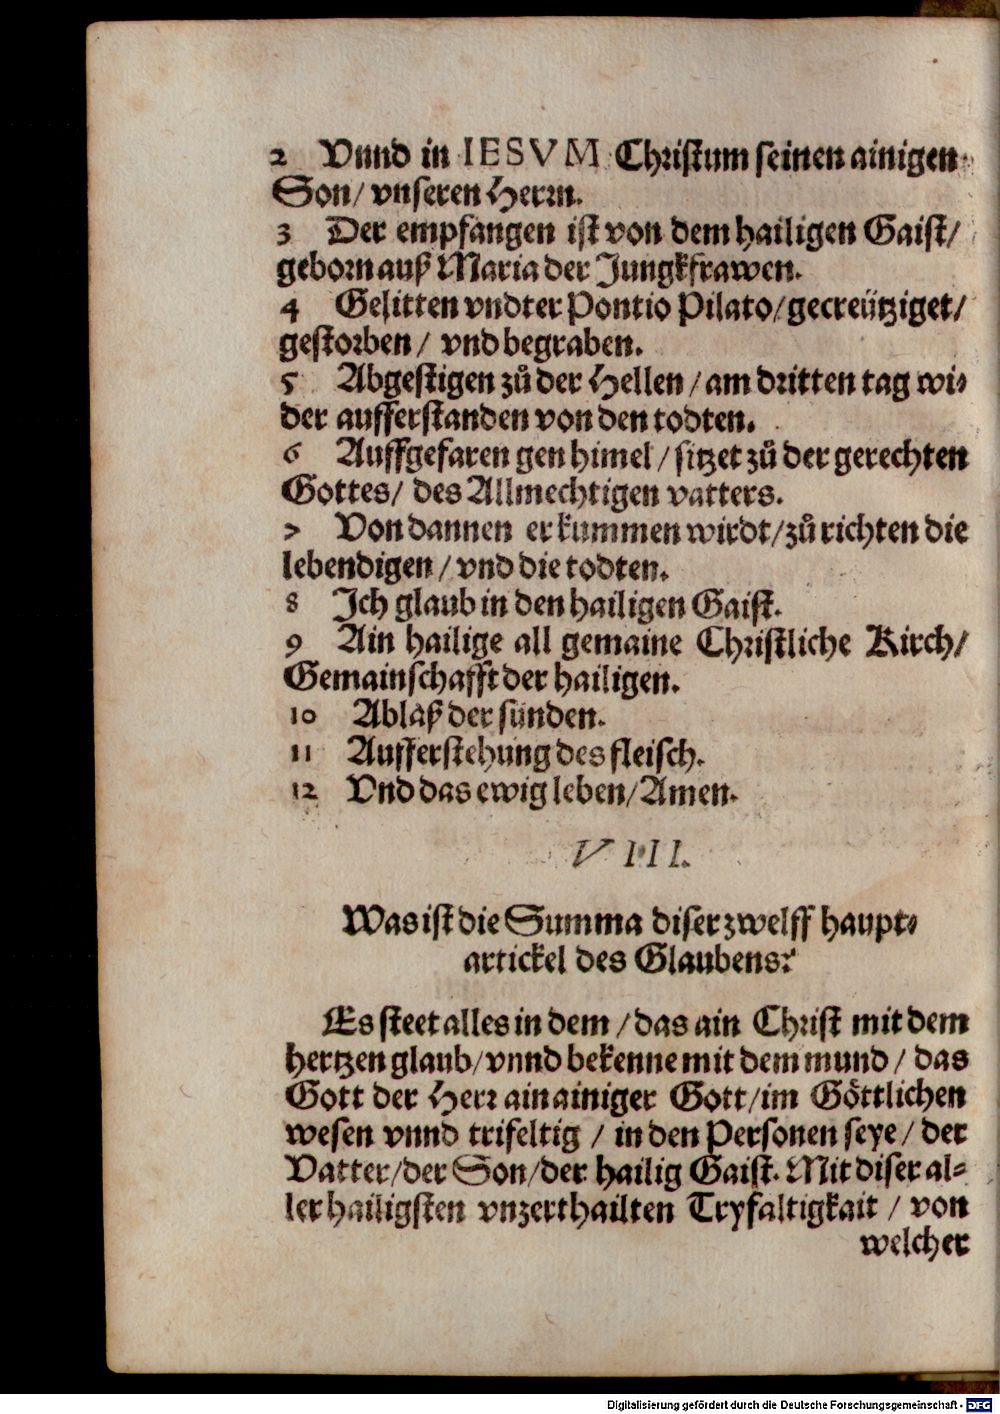 2 Vnnd in IESVM Christum seinen ainigen
Son/ vnseren Herrn.
3 Der empfangen ist von dem hailigen Gaist/
geborn auß Maria der Jungkfrawen.
4 Gelitten vndter Pontio Pilato/ gecreütziget/
gestorben/ vnd begraben.
5 Abgestigen zů der Hellen / am dritten tag wi⸗
der aufferstanden von den todten.
6 Auffgefaren gen himel / sitzet zů der gerechten
Gottes/ des Allmechtigen vatters.
7 Von dannen er kummen wirdt/ zů richten die
lebendigen / vnd die todten.
8 Ich glaub in den hailigen Gaist.
9 Ain hailige all gemaine Christliche Kirch/
Gemainschafft der hailigen.
10 Ablaß der sünden.
11 Aufferstehung des fleisch.
12 Vnd das ewig leben/ Amen.
VIII.
Was ist die Summa diser zwelff haupt⸗
artickel des Glaubens?
Es steet alles in dem / das ain Christ mit dem
hertzen glaub/ vnnd bekenne mit dem mund / das
Gott der Herr ain ainiger Gott/ im Göttlichen
wesen vnnd trifeltig / in den Personen seye / der
Vatter/ der Son/ der hailig Gaist. Mit diser al⸗
ler hailigsten vnzerthailten Tryfaltigkait / von
welcher
Digitalisierung gefördert durch die Deutsche Forschungsgemeinschaft - DFG